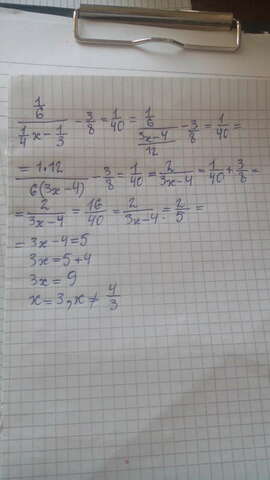 (1/6)/(1/4 x - 1/3) - 3/8 = 1/40 = (1/6)/((3x-4)/12) - 3/8 = 1/40 =
= (1.12)/(6(3x-4)) - 3/8 = 1/40 = 2/(3x-4) = 1/40 + 3/8 =
= 2/(3x-4) = 16/40 = 2/(3x-4) = 2/5 =
= 3x-4=5
3x=5+4
3x=9
x=3, x≠ 4/3